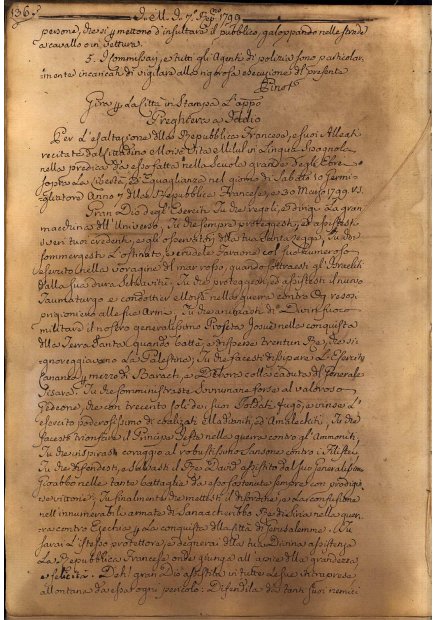 136.
I. M. I. 7. 1799
persone, che si mettono d'insultare il pubblico, galoppando nelle strade
a cavallo o in vettura.
5. I commissari, e tutti gli Agenti di polizia sono particolar-
mente incaricati di vigilare alla rigorosa esecuzione del presente
Pinot
Gira p la Città in Stampa l'appo
Preghiera a Iddio
Per l'esaltazione della Repubblica Francese, e suoi Alleati
recitata dal cittadino Moisè Vita Milul in Lingua Spagnola
nella predica da esso fatta nella Scuola grande degli Ebrei
sopra la Libertà, ed Eguaglianza nel giorno di Sabato 10 Germi-
le Anno 7 della Repubblica Francese, e 30 Marzo 1799. V.S.
Gran Dio degli Eserciti Tu che regoli, e dirigi La gran
macchina dell'Universo, Tu che sempre proteggesti, ed assistesti
i veri tuoi credenti, e gli osservatori della tua Santa Legge, Tu che
sommergesti L'ostinato, e crudele Faraone col suo numeroso
esercito nella voragine del mar rosso, quando sottraesti gl'Israeliti
dalla sua dura schiavitù. Tu che proteggesti, ed assistesti il nuovo
Taumaturgo e condottier Moisè nella guerra contro Og reso
prigioniero alle sue Armi. Tu che animasti di Divin fuoco
militare il nostro generalissimo Profeta Josuè nella conquista
della Terra Santa quando battè, e disperse trentun Re, che si-
gnoreggiavano la Palestina; Tu che facesti dissipare L'Esercito
Cananeo p mezzo di Barach, e Debora colla caduta del Generale
Sisara. Tu che somministraste sovrumane forze al valoroso
Gedeone, che con trecento soli de' suoi Soldati fugò, e vinse l'
esercito poderosissimo di coalizati Madianiti, ed Amalechiti. Tu che
facesti trionfare il Principe Jefte nella guerra contro gl'Ammoniti,
Tu che inspirasti coraggio al robustissimo Sansone contro i Filistei,
Tu che difendesti, e salvasti il Pro David assistito dal suo generalissimo
Gioabbo nelle tante battaglie da esso sostenute sempre con prodigi
Tu finalmente che mettesti il disordine, e la confusione
nell'innumerabile armata di Sanaccheribbo Re di Siria nella guer-
ra contro Ezechia p La conquista della Città di Gerusalemme. Tu
sarai L'istesso protettore, e degnerai della tua Divina assistenza
La Repubblica Francese onde giunga all'apice della grandezza,
e felicità. Deh! gran Dio assistila in tutte le sue intraprese
allontana da essa ogni pericolo: Difendila da tanti suoi nemici